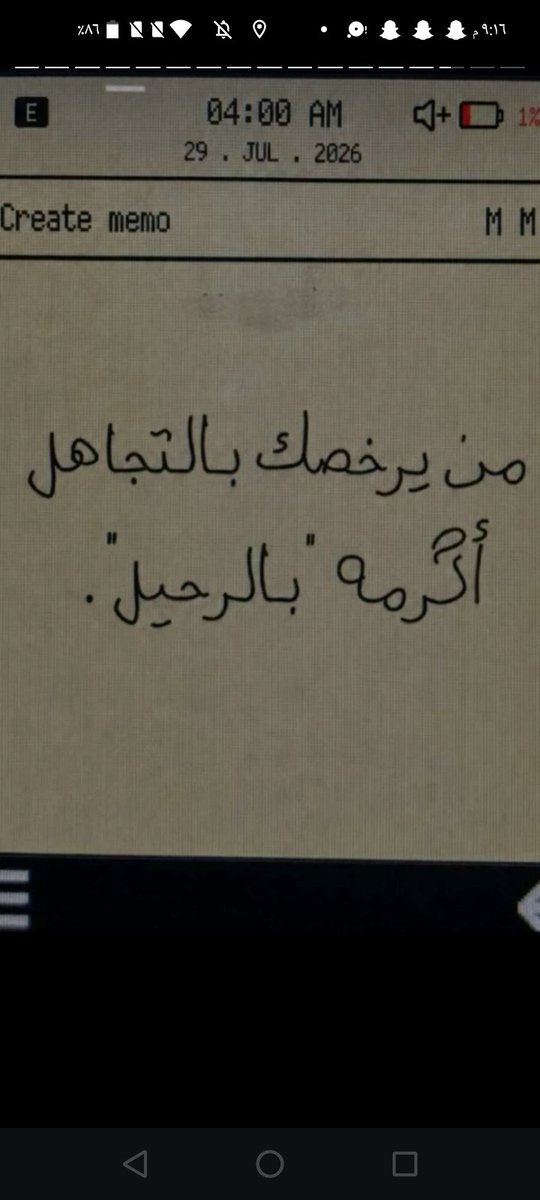 ٩:١٦ م
٪٨٦
E
04:00 AM
1%
29 . JUL . 2026
Create memo
M M
من يرخصك بالتجاهل
أكرمه "بالرحيل".